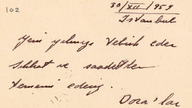 102
30/XII/959
İstanbul
Yeni yılınızı tebrik eder
sıhhat ve saadetler
temenni ederiz.